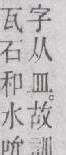 字从皿。故訓
瓦石和水